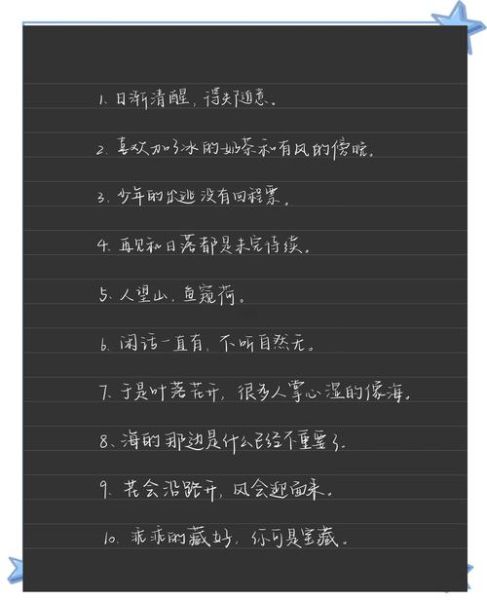 1. 日渐清醒，得失随意。
2. 喜欢加了冰的奶茶和有风的傍晚。
3. 少年的出逃没有回程票。
4. 再见和日落都是未完待续。
5. 人望山，鱼窥荷。
6. 闲话一直有，不听自然无。
7. 于是叶落花开，很多人掌心湿的像海。
8、海的那边是什么已经不重要了。
9. 花会沿路开，风会迎面来。
10. 乖乖的藏好，你可是宝藏。